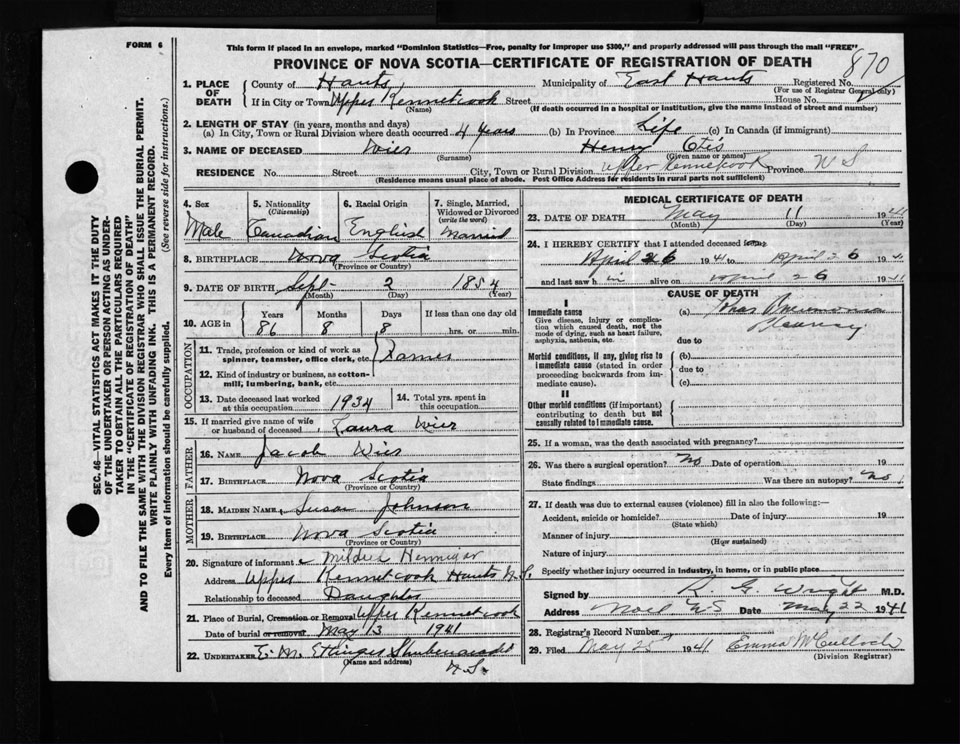 FORM 6
This form if placed in an envelope, marked "Dominion Statistics—Free, penalty for improper use $300," and properly addressed will pass through the mail "FREE"
PROVINCE OF NOVA SCOTIA—CERTIFICATE OF REGISTRATION OF DEATH
870
1. PLACE OF DEATH
County of Hants Municipality of East Hants Registered No.
(For use of Registrar General only)
If in City or Town Upper Kennetcook Street House No.
(Name) (If death occurred in a hospital or institution, give the name instead of street and number)
2. LENGTH OF STAY (in years, months and days)
(a) In City, Town or Rural Division where death occurred 4 years (b) In Province Life (c) In Canada (if immigrant)
3. NAME OF DECEASED Wier Henry Otis
(Surname) (Given name or names)
RESIDENCE No. Street City, Town or Rural Division Upper Kennetcook Province N S
(Residence means usual place of abode. Post Office Address for residents in rural parts not sufficient)
4. Sex Male
5. Nationality (Citizenship) Canadian
6. Racial Origin English
7. Single, Married, Widowed or Divorced (write the word) Married
8. BIRTHPLACE Nova Scotia
(Province or Country)
9. DATE OF BIRTH Sept 2 1854
(Month) (Day) (Year)
10. AGE in Years 86 Months 8 Days 8 If less than one day old hrs. or min.
OCCUPATION
11. Trade, profession or kind of work as spinner, teamster, office clerk, etc. Farmer
12. Kind of industry or business, as cotton-mill, lumbering, bank, etc.
13. Date deceased last worked at this occupation 1934 14. Total yrs. spent in this occupation
15. If married give name of wife or husband of deceased Laura Wier
FATHER
16. NAME Jacob Wier
17. BIRTHPLACE Nova Scotia
(Province or Country)
MOTHER
18. MAIDEN NAME Susan Johnson
19. BIRTHPLACE Nova Scotia
(Province or Country)
20. Signature of informant Mildred Hennigar
Address Upper Kennetcook Hants N.S.
Relationship to deceased Daughter
21. Place of Burial, Cremation or Removal Upper Kennetcook
Date of burial or removal May 13 1941
22. UNDERTAKER E. M. Ettinger Shubenacadie
(Name and address) N.S.
MEDICAL CERTIFICATE OF DEATH
23. DATE OF DEATH May 11 19
(Month) (Day) (Year)
24. I HEREBY CERTIFY that I attended deceased from
April 26 1941 to April 26 1941
and last saw h im alive on April 26 1941
CAUSE OF DEATH
I
Immediate cause
Give disease, injury or complication which caused death, not the mode of dying, such as heart failure, asphyxia, asthenia, etc.
(a) Pneumonia
Pleurisy
due to
Morbid conditions, if any, giving rise to immediate cause (stated in order proceeding backwards from immediate cause).
(b)
due to
(c)
II
Other morbid conditions (if important) contributing to death but not causally related to immediate cause.
25. If a woman, was the death associated with pregnancy?
26. Was there a surgical operation? No Date of operation 19
State findings Was there an autopsy? No
27. If death was due to external causes (violence) fill in also the following:—
Accident, suicide or homicide? Date of injury 19
(State which)
Manner of injury
(How sustained)
Nature of injury
Specify whether injury occurred in industry, in home, or in public place
Signed by R. G. Wright M.D.
Address Noel N S Date May 22 1941
28. Registrar's Record Number
29. Filed May 1941 Emma McCulloch
(Division Registrar)
SEC. 46—VITAL STATISTICS ACT MAKES IT THE DUTY
OF THE UNDERTAKER OR PERSON ACTING AS UNDER-
TAKER TO OBTAIN ALL THE PARTICULARS REQUIRED
IN THE "CERTIFICATE OF REGISTRATION OF DEATH"
AND TO FILE THE SAME WITH THE DIVISION REGISTRAR WHO SHALL ISSUE THE BURIAL PERMIT.
WRITE PLAINLY WITH UNFADING INK. THIS IS A PERMANENT RECORD.
Every item of information should be carefully supplied. (See reverse side for instructions.)